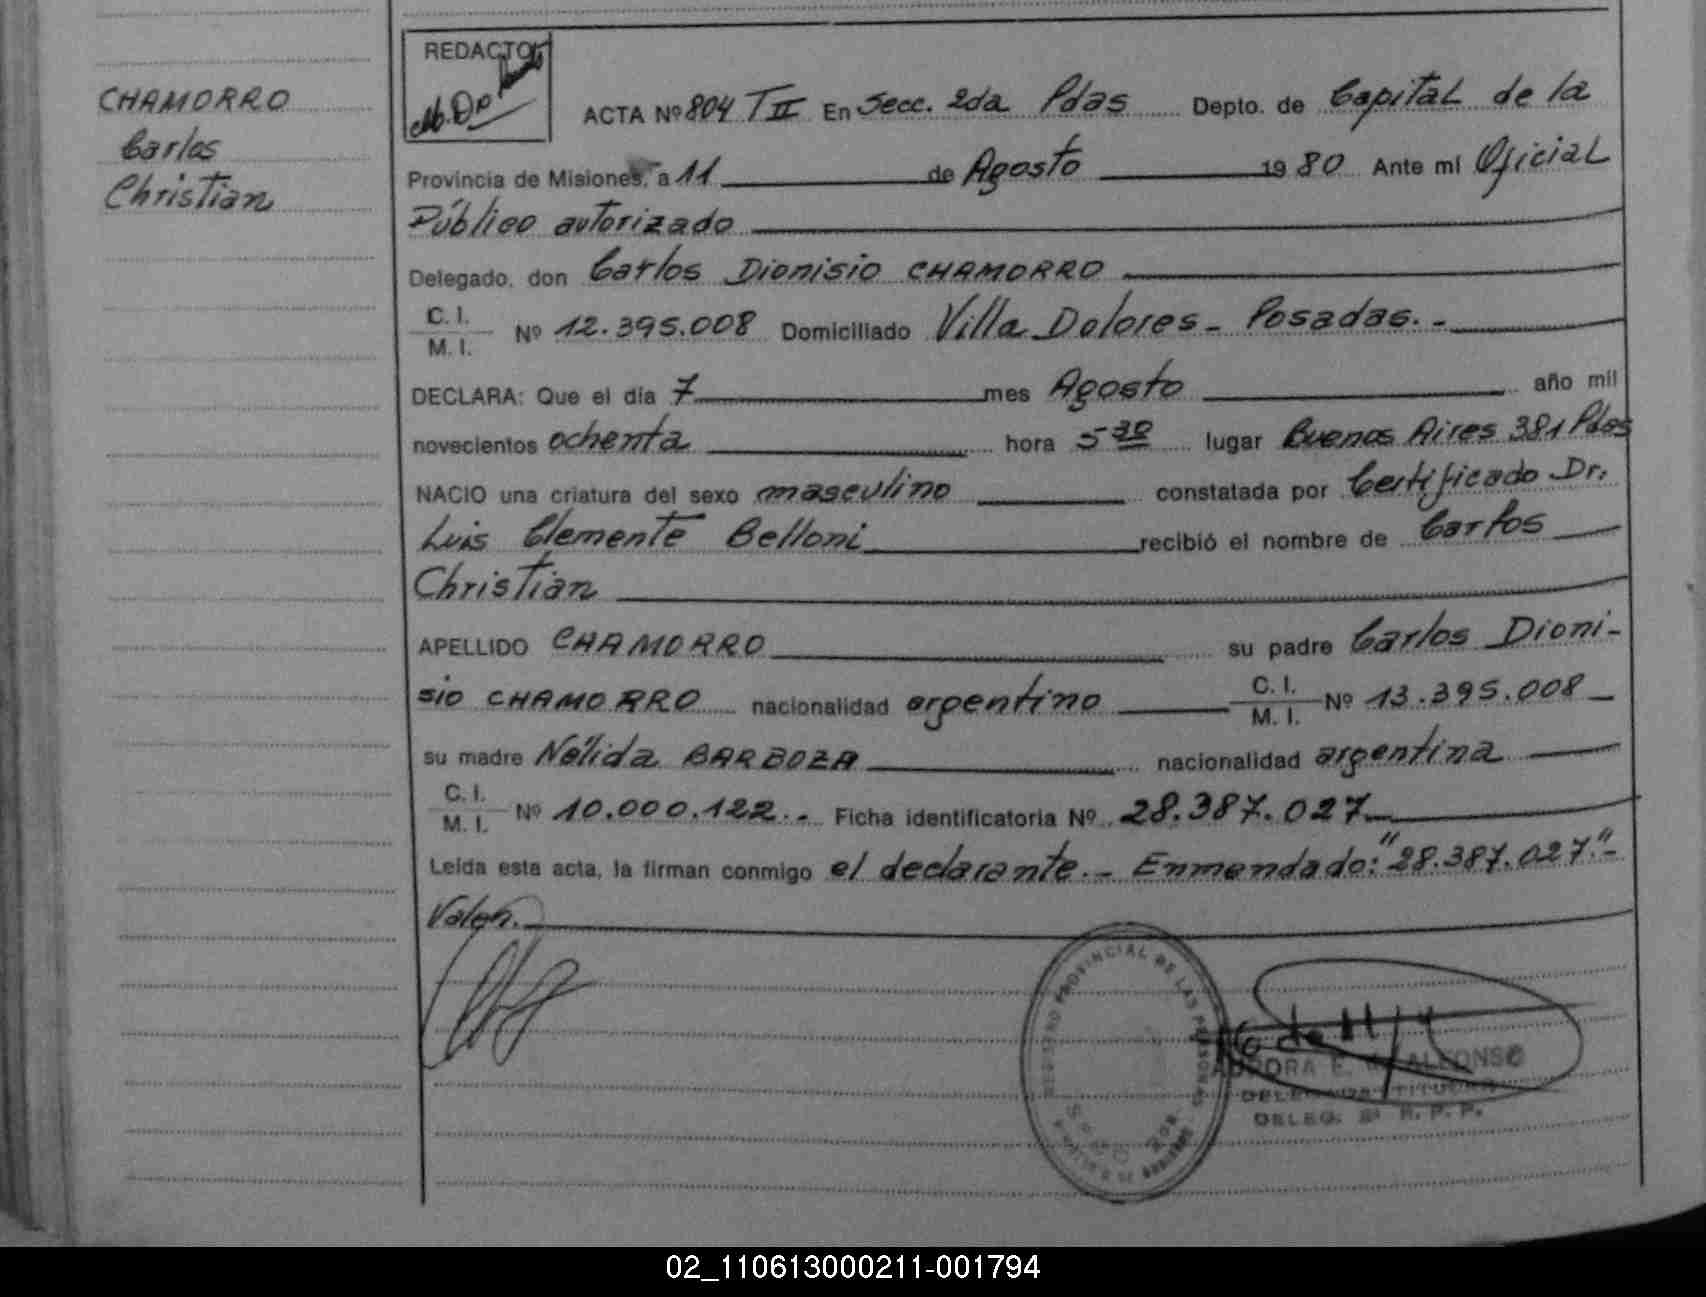 CHAMORRO
Carlos
Christian
REDACTOR
ACTA Nº 804 T II En Secc. 2da Pdas Depto. de Capital de la
Provincia de Misiones, a 11 de Agosto 1980 Ante mi Oficial
Público autorizado
Delegado, don Carlos Dionisio CHAMORRO
C. I.
M. I. Nº 12.395.008 Domiciliado Villa Dolores - Posadas. -
DECLARA: Que el día 7 mes Agosto año mil
novecientos ochenta hora 5 30 lugar Buenos Aires 381 Pdas
NACIO una criatura del sexo masculino constatada por Certificado Dr.
Luis Clemente Belloni recibió el nombre de Carlos
Christian
APELLIDO CHAMORRO su padre Carlos Dioni-
sio CHAMORRO nacionalidad argentino C. I. M. I. Nº 13.395.008
su madre Nélida BARBOZA nacionalidad argentina
C. I.
M. I. Nº 10.000.122.- Ficha identificatoria Nº 28.387.027
Leída esta acta, la firman conmigo el declarante.- Enmendado: "28.387.027."-
Valen.
REGISTRO PROVINCIAL DE LAS PERSONAS
AURORA E. ALFONSO
DELEGADA TITULAR
DELEG. 2ª R. P. P.
02_110613000211-001794